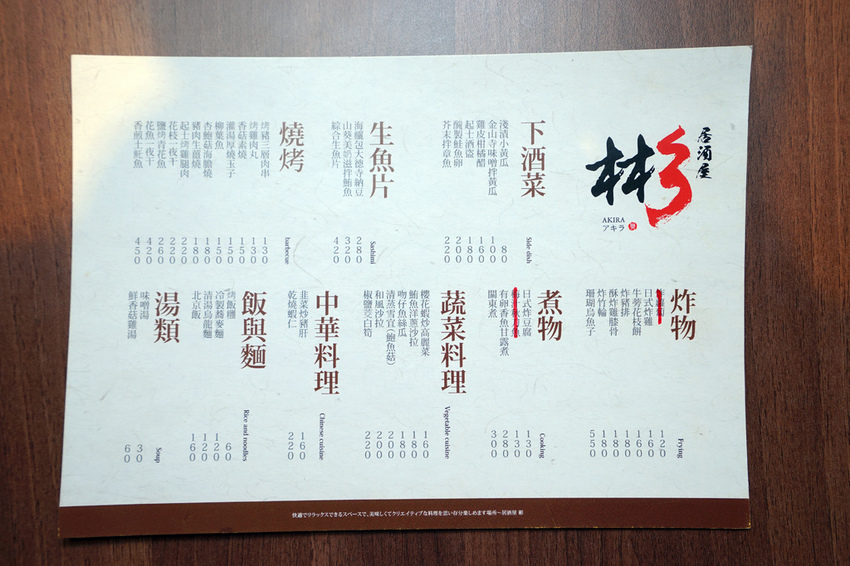 居酒屋
彬
AKIRA
アキラ
下酒菜
Side dish
淺漬小黃瓜 80
金山寺味噌拌黃瓜 100
雞皮柑橘醋 160
起士酒盜 180
醃製鮭魚卵 200
芥末拌章魚 220
生魚片
Sashimi
海膽包大德寺納豆 280
山葵美奶滋拌鮪魚 320
綜合生魚片 420
燒烤
barbecue
烤豬三層肉串 130
烤雞肉丸 130
香菇素燒 150
灌湯厚燒玉子 150
柳葉魚 150
杏鮑菇海膽燒 180
豬肉生薑燒 180
起士烤雞腿肉 220
花枝一夜干 220
鹽烤青花魚 260
花魚一夜干 420
香煎土魠魚 450
炸物
Frying
120
日式炸雞 160
牛蒡花枝餅 160
炸豬排 180
酥炸雞膝骨 180
炸竹輪 180
珊瑚烏魚子 550
煮物
Cooking
日式炸豆腐 130
130
有卵香魚甘露煮 280
關東煮 300
蔬菜料理
Vegetable cuisine
櫻花蝦炒高麗菜 160
鮪魚洋蔥沙拉 180
吻仔魚絲瓜 200
清蒸雪宜(鮑魚菇) 200
和風沙拉 220
椒鹽茭白筍 220
中華料理
Chinese cuisine
韭菜炒豬肝 160
乾燒蝦仁 220
飯與麵
Rice and noodles
烤飯糰 60
冷製蕎麥麵 120
清湯烏龍麵 120
北京飯 160
湯類
Soup
味噌湯 30
鮮香菇雞湯 60
快適でリラックスできるスペースで、美味しくてクリエイティブな料理を思い存分楽しめます場所~居酒屋 彬